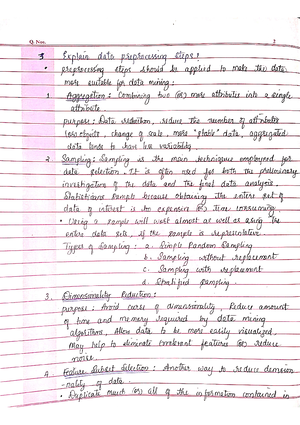 Q. Nos. 2
3 Explain data preprocessing steps?
• preprocessing steps should be applied to make the data
more suitable for data mining:
1. Aggregation: Combining two (or) more attributes into a single
attribute
purpose: Data reduction, reduce the number of attributes
(or) objects, change of scale, more "stable" data, aggregated
data tends to have less variability.
2. Sampling: Sampling is the main technique employed for
data selection. It is often used for both the preliminary
investigation of the data and the final data analysis.
Statisticians sample because obtaining the entire set of
data of interest is too expensive (or) time consuming.
• Using a sample will work almost as well as using the
entire data sets, if the sample is representative.
Types of Sampling: a. Simple Random Sampling
b. Sampling without replacement
c. Sampling with replacement
d. Stratified Sampling.
3. Dimensionality Reduction:
purpose: Avoid curse of dimensionality, Reduce amount
of time and memory required by data mining
algorithms, Allow data to be more easily visualized,
May help to eliminate irrelevant features (or) reduce
noise.
4. Feature Subset Selection: Another way to reduce dimension
-nality of data.
• Duplicate much (or) all of the information contained in